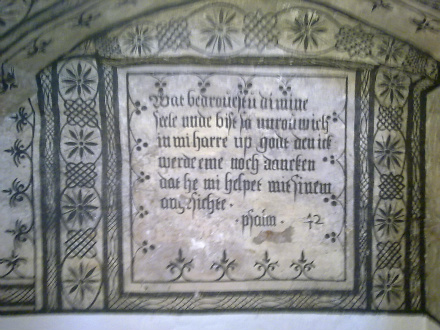 Wat bedrouestu di mine
seele unde bist so unrouwich
in mi harre up godt den ick
werde eme noch dancken
dat he mi helpet mit sinem
angesichte.
· psalm · 42